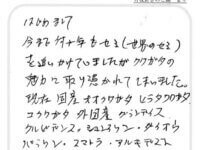 はじめまして
今まで何十年もセミ(世界のセミ)
を追いかけていましたがクワガタの
魅力に取り憑かれてしまいました。
現在 国産オオクワガタ ヒラタクワガタ
コクワガタ 外国産 グランディス
クルビデンス。シェンリン・ダイオウ
・スマトラ・アルキデス